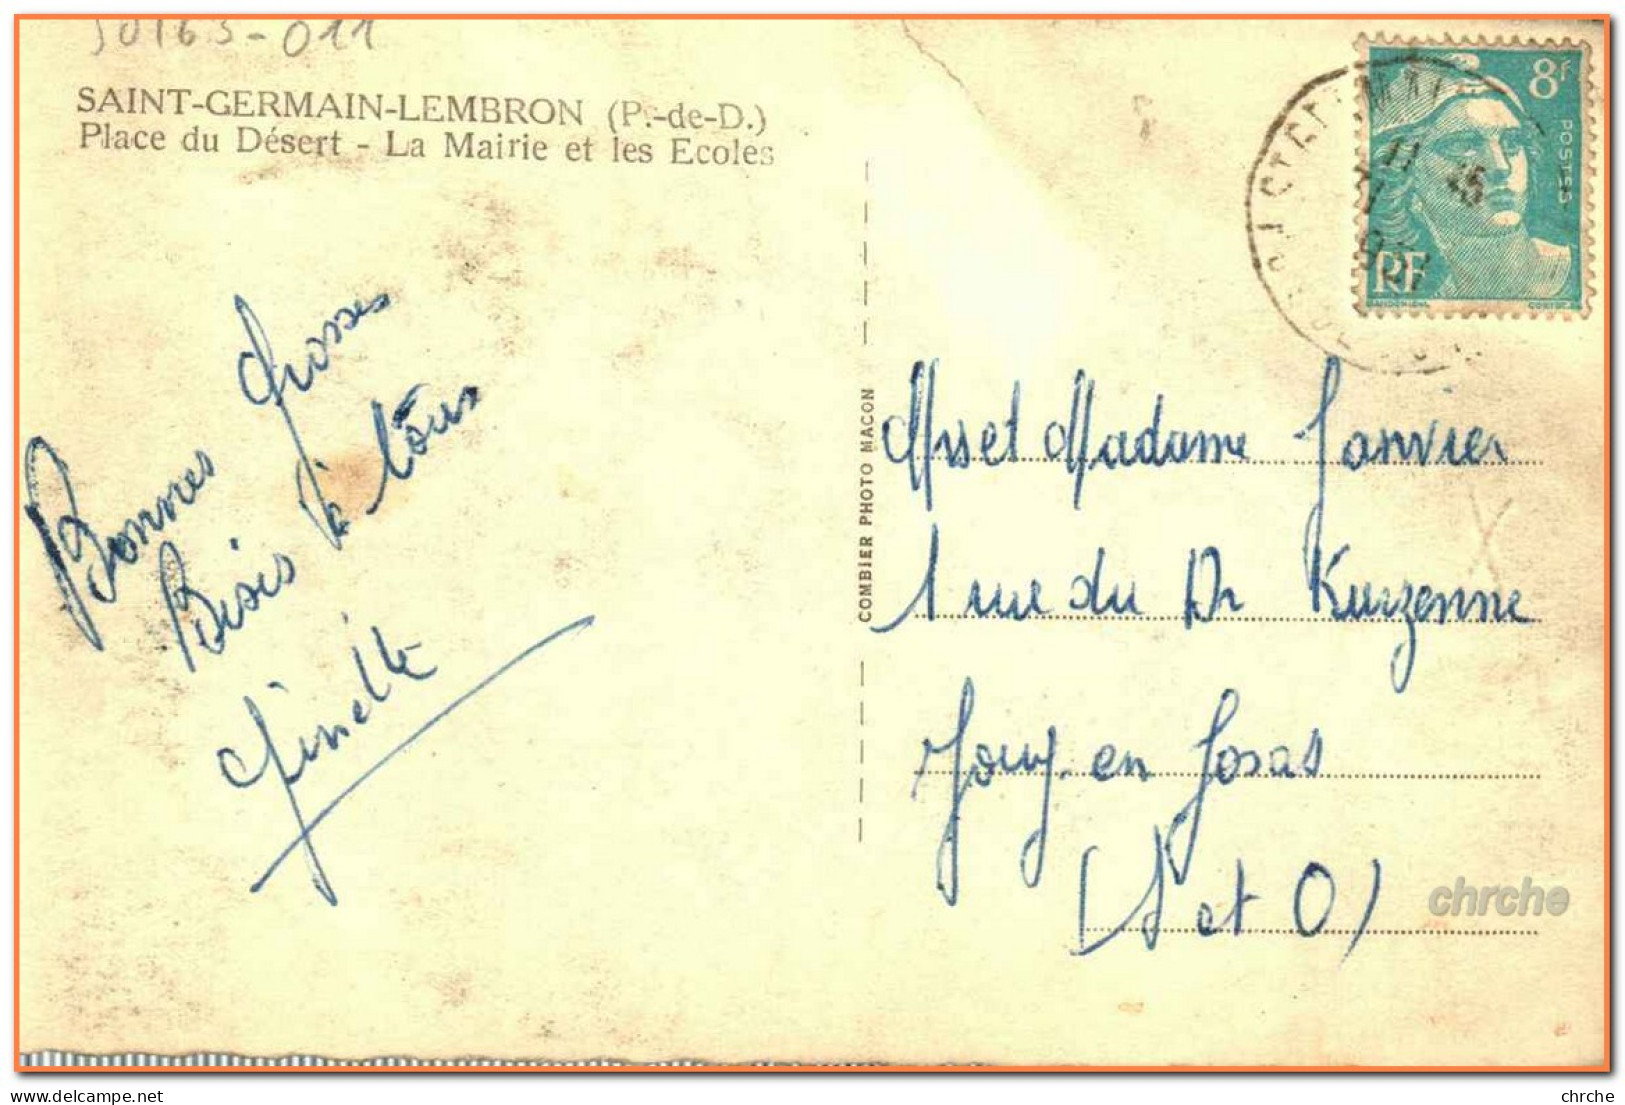 SAINT-GERMAIN-LEMBRON (P.-de-D.)
Place du Désert - La Mairie et les Ecoles
Bonnes Grosses
Bises à tous
Ginette
COMBIER PHOTO MACON
8F
POSTES
RF
GANDON
11
45
Mr et Madame Janvier
1 rue du Dr Kurzenne
Jouy. en Josas
(S et O)
chrche
delcampe.net
chrche